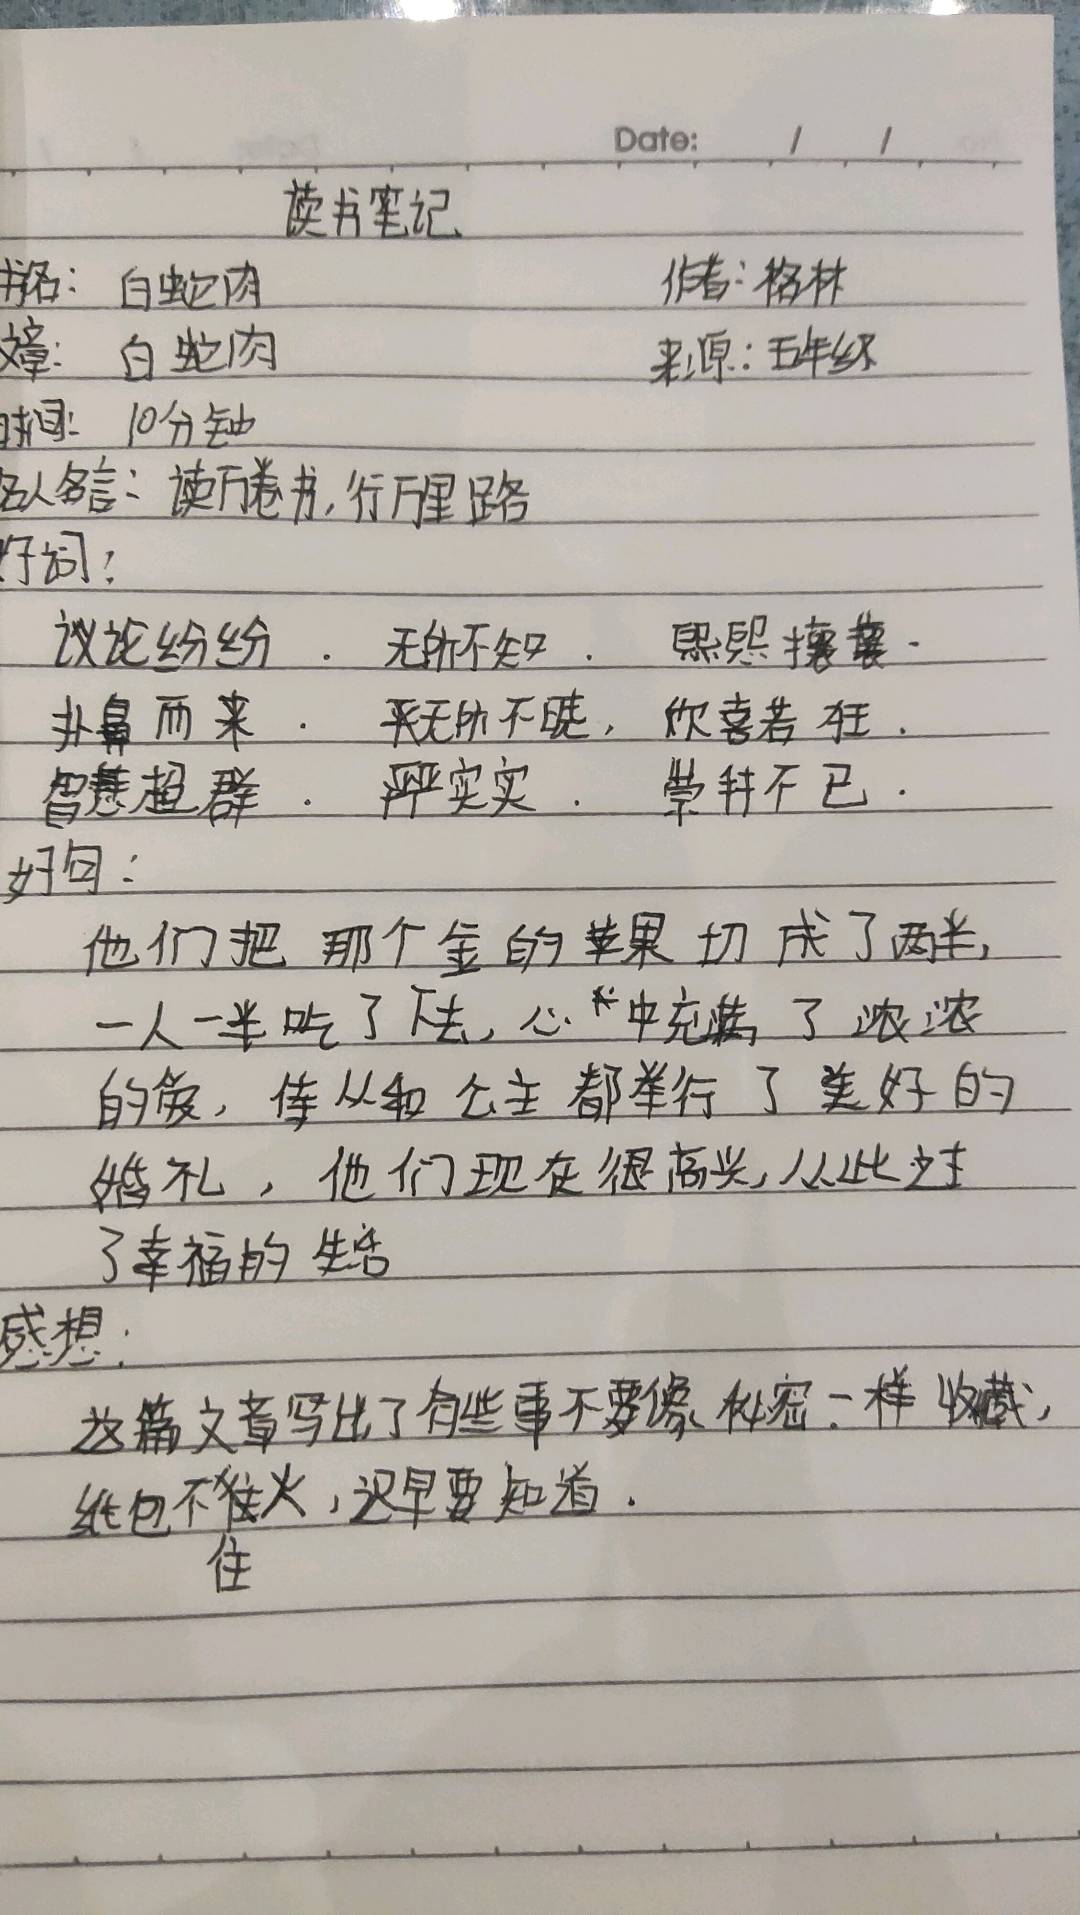 Date: / /
读书笔记
书名: 白蛇肉 作者: 格林
文章: 白蛇肉 来源: 五年级
时间: 10分钟
名人名言: 读万卷书, 行万里路
好词:
议论纷纷. 无所不知. 熙熙攘攘.
扑鼻而来. 无所不晓, 欣喜若狂.
智慧超群. 严严实实. 赞不已.
好句:
他们把那个金的苹果切成了两半,
一人一半吃了下去, 心中充满了浓浓
的爱, 侍从和公主都举行了美好的
婚礼, 他们现在很高兴, 从此过
了幸福的生活
感想:
这篇文章写出了有些事不要像秘密一样收藏,
纸包不住火, 迟早要知道.
住